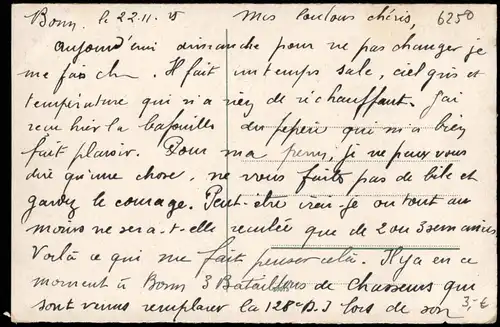 Bonn, le 22.11.25 Mes loulous chéris, 6250
Aujourd'hui dimanche pour ne pas changer je
me fais ch... Il fait un temps sale, ciel gris et
température qui n'a rien de réchauffant. J'ai
reçu hier la bafouille du pépère qui m'a bien
fait plaisir. Pour ma perm, je ne peux vous
dire qu'une chose, ne vous faites pas de bile et
gardez le courage. Peut-être irai-je ou tout au
moins ne sera-t-elle reculée que de 2 ou 3 semaines
Voilà ce qui me fait penser cela. Il y a en ce
moment à Bonn 3 Bataillons de Chasseurs qui
sont venus remplacer la 128e D.I lors de son
3,-€